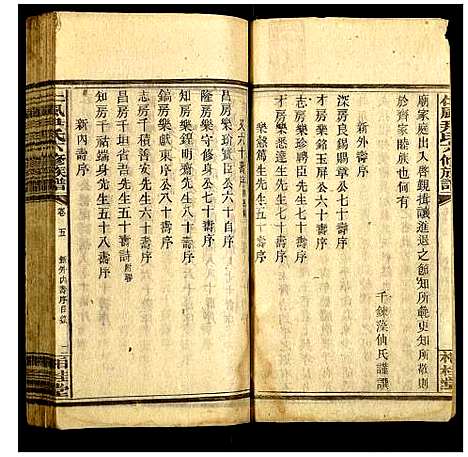 廟家庭出入啓觀揖讓進退之節知所範更知所敬則
於齊家睦族也何有
千鍊藻仙氏謹譔
新外壽序
深房良錫賜章公七十壽序
才房樂銘玉屏公六十壽序
志房樂珍聘臣先生七十壽序
樂懿篤生先生七十壽序
又六十壽序
隆房樂琦寶臣公六十自序
昌房樂守修身公七十壽序
知房樂鍠明齋先生七十壽序
鎬房樂獻東公八十壽序
志房千積善安先生六十壽序
昌房千垣省吾先生六十壽詩
知房千壽先生五十八壽序
新內壽序
仁風尹氏六修族譜
卷五
新外內壽序目錄
二
相桂堂